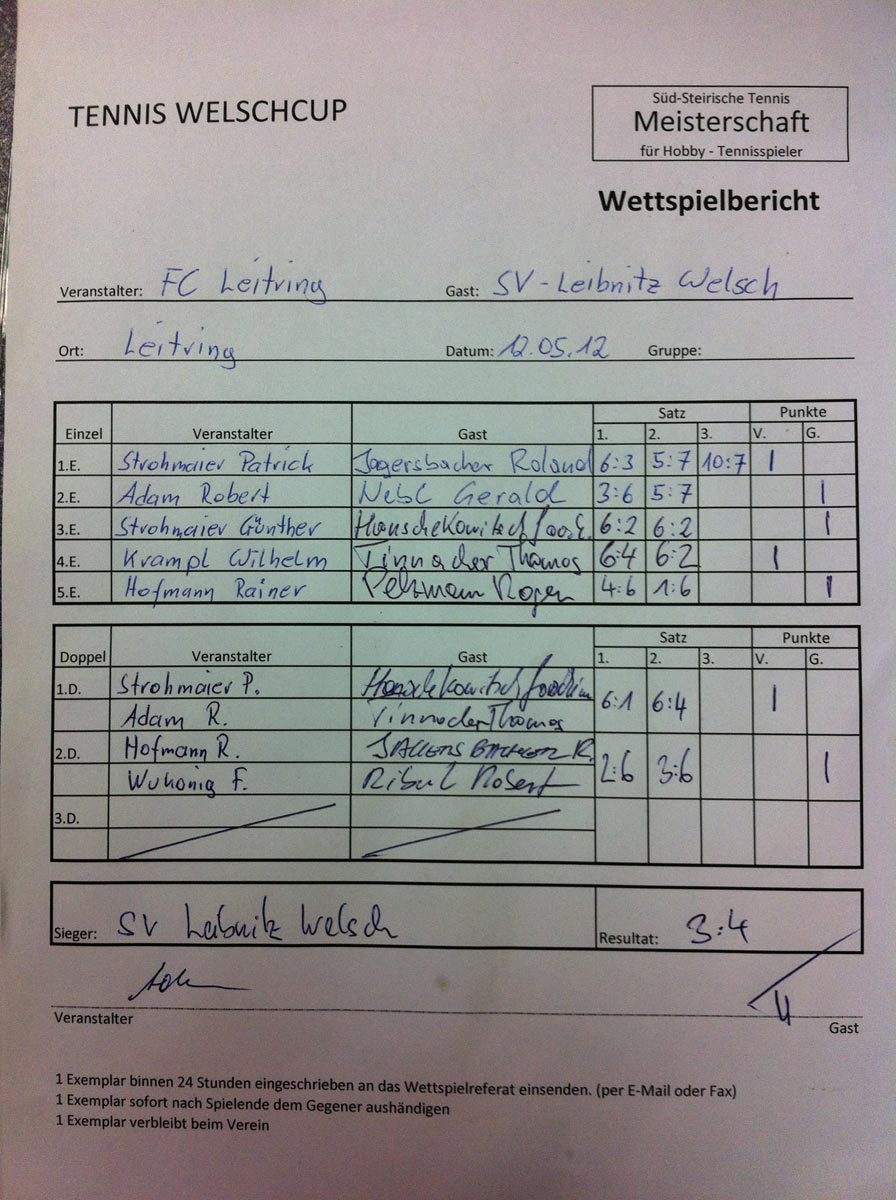 TENNIS WELSCHCUP
Süd-Steirische Tennis
Meisterschaft
für Hobby - Tennisspieler
Wettspielbericht
Veranstalter: FC Leitring Gast: SV-Leibnitz Welsch
Ort: Leitring Datum: 12.05.12 Gruppe:
Satz Punkte
Einzel Veranstalter Gast 1. 2. 3. V. G.
1.E. Strohmaier Patrick Jagersbacher Roland 6:3 5:7 10:7 1
2.E. Adam Robert Nebl Gerald 3:6 5:7 1
3.E. Strohmaier Günther 6:2 6:2 1
4.E. Krampl Wilhelm Tinnacher Thomas 6:4 6:2 1
5.E. Hofmann Rainer 4:6 1:6 1
Satz Punkte
Doppel Veranstalter Gast 1. 2. 3. V. G.
1.D. Strohmaier P. 6:1 6:4 1
Adam R. Tinnacher Thomas
2.D. Hofmann R. R. 2:6 3:6 1
Wukonig F. Robert
3.D.
Sieger: SV Leibnitz Welsch Resultat: 3:4
Veranstalter Gast
1 Exemplar binnen 24 Stunden eingeschrieben an das Wettspielreferat einsenden. (per E-Mail oder Fax)
1 Exemplar sofort nach Spielende dem Gegener aushändigen
1 Exemplar verbleibt beim Verein